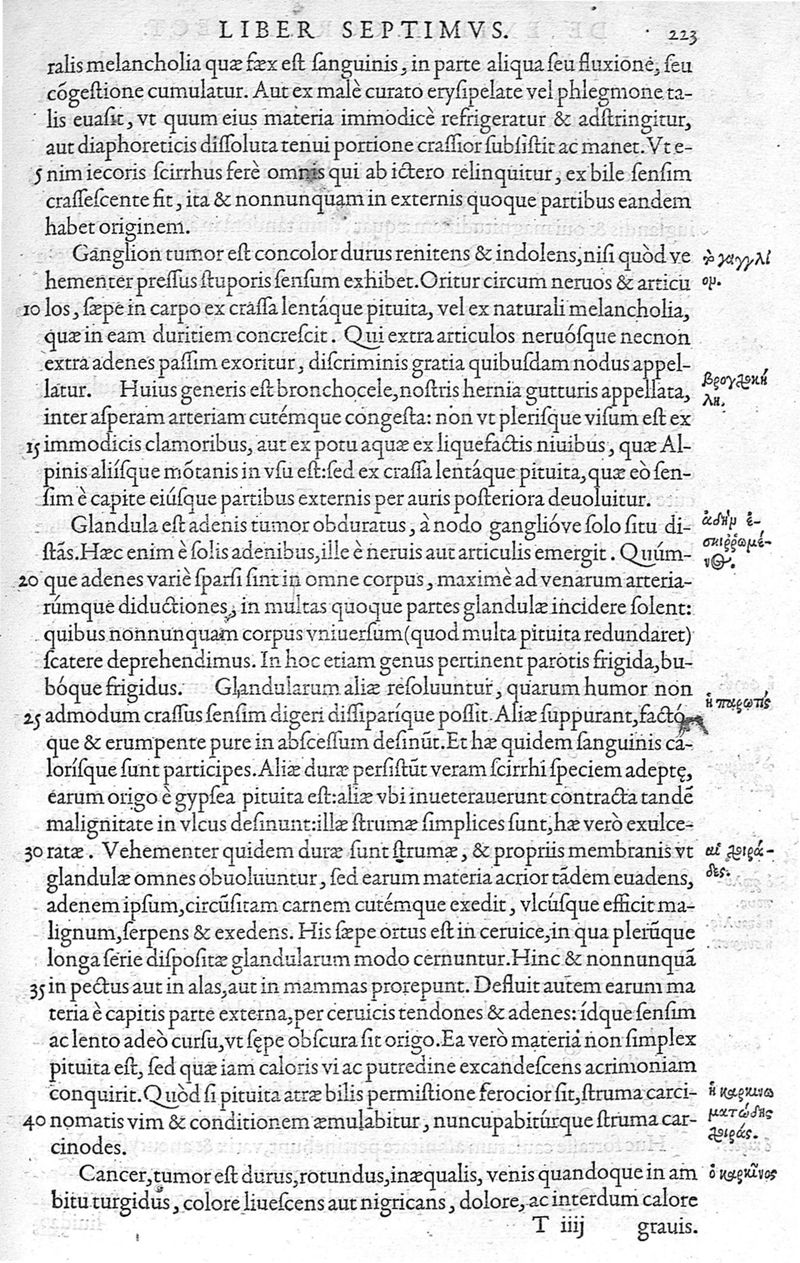 LIBER SEPTIMVS. 223
ralis melancholia quæ fæx eſt ſanguinis, in parte aliqua ſeu fluxione, ſeu
cõgeſtione cumulatur. Aut ex malè curato eryſipelate vel phlegmone ta-
lis euaſit, vt quum eius materia immodicè refrigeratur & adſtringitur,
aut diaphoreticis diſſoluta tenui portione craſſior ſubſiſtit ac manet. Vt e-
5 nim iecoris ſcirrhus ferè omnis qui ab ictero relinquitur, ex bile ſenſim
craſſeſcente fit, ita & nonnunquam in externis quoque partibus eandem
habet originem.
Ganglion tumor eſt concolor durus renitens & indolens, niſi quòd ve τὸ γαγγλί
hementer preſſus ſtuporis ſenſum exhibet. Oritur circum neruos & articu ομ.
10 los, ſæpe in carpo ex craſſa lentáque pituita, vel ex naturali melancholia,
quæ in eam duritiem concreſcit. Qui extra articulos neruóſque necnon
extra adenes paſſim exoritur, diſcriminis gratia quibuſdam nodus appel-
latur. Huius generis eſt bronchocele, noſtris hernia gutturis appellata, βρογχοκή
inter aſperam arteriam cutémque congeſta: non vt pleriſque viſum eſt ex λη.
15 immodicis clamoribus, aut ex potu aquæ ex liquefactis niuibus, quæ Al-
pinis aliíſque mõtanis in vſu eſt: ſed ex craſſa lentáque pituita, quæ eò ſen-
ſim è capite eiúſque partibus externis per auris poſteriora deuoluitur.
Glandula eſt adenis tumor obduratus, à nodo ganglióve ſolo ſitu di- ἀδὴμ ἐ-
ſtãs. Hæc enim è ſolis adenibus, ille è neruis aut articulis emergit. Quúm- σκιῤῥωμέ-
20 que adenes variè ſparſi ſint in omne corpus, maximè ad venarum arteria- νος.
rúmque diductiones, in multas quoque partes glandulæ incidere ſolent:
quibus nonnunquam corpus vniuerſum (quod multa pituita redundaret)
ſcatere deprehendimus. In hoc etiam genus pertinent parotis frigida, bu-
bóque frigidus. Glandularum aliæ reſoluuntur, quarum humor non ἡ παρωτὶς
25 admodum craſſus ſenſim digeri diſſiparíque poſſit. Aliæ ſuppurant, facto
que & erumpente pure in abſceſſum deſinũt. Et hæ quidem ſanguinis ca-
loríſque ſunt participes. Aliæ duræ perſiſtũt veram ſcirrhi ſpeciem adeptę,
earum origo è gypſea pituita eſt: aliæ vbi inueterauerunt contracta tandẽ
malignitate in vlcus deſinunt: illæ ſtrumæ ſimplices ſunt, hæ verò exulce-
30 ratæ. Vehementer quidem duræ ſunt ſtrumæ, & propriis membranis vt αἱ χοιρά-
glandulæ omnes obuoluuntur, ſed earum materia acrior tãdem euadens, δες.
adenem ipſum, circũſitam carnem cutémque exedit, vlcúſque efficit ma-
lignum, ſerpens & exedens. His ſæpe ortus eſt in ceruice, in qua plerũque
longa ſerie diſpoſitæ glandularum modo cernuntur. Hinc & nonnunquã
35 in pectus aut in alas, aut in mammas prorepunt. Defluit autem earum ma
teria è capitis parte externa, per ceruicis tendones & adenes: ídque ſenſim
ac lento adeò curſu, vt ſępe obſcura ſit origo. Ea verò materia non ſimplex
pituita eſt, ſed quæ iam caloris vi ac putredine excandeſcens acrimoniam
conquirit. Quòd ſi pituita atræ bilis permiſtione ferocior ſit, ſtruma carci- ἡ καρκινω
40 nomatis vim & conditionem æmulabitur, nuncupabitúrque ſtruma car- ματώδης
cinodes. χοιράς.
Cancer, tumor eſt durus, rotundus, inæqualis, venis quandoque in am ὁ καρκῖνος
bitu turgidus, colore liueſcens aut nigricans, dolore, ac interdum calore
T iiij grauis.